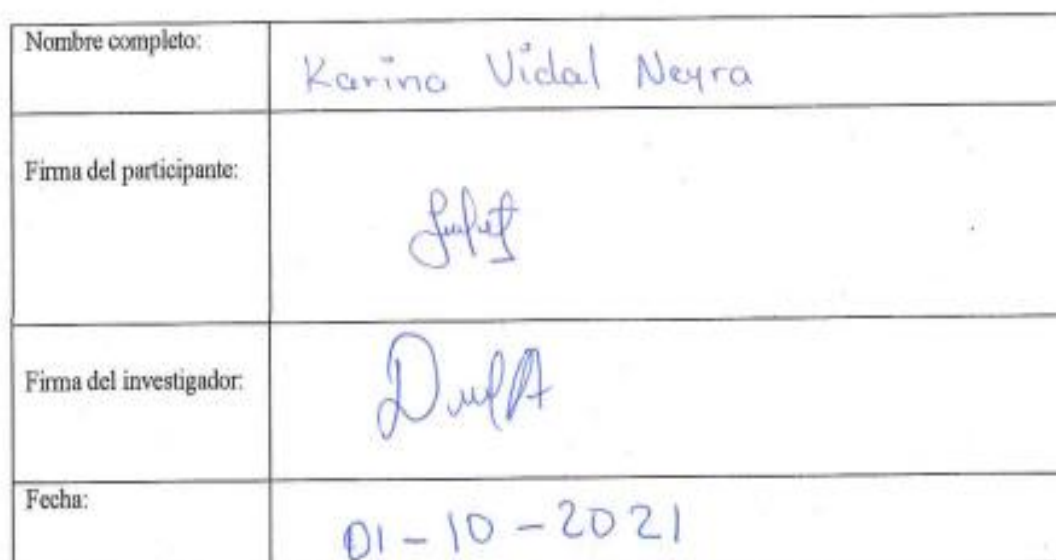 Nombre completo:
Karina Vidal Neyra
Firma del participante:
Firma del investigador:
Fecha:
01-10-2021